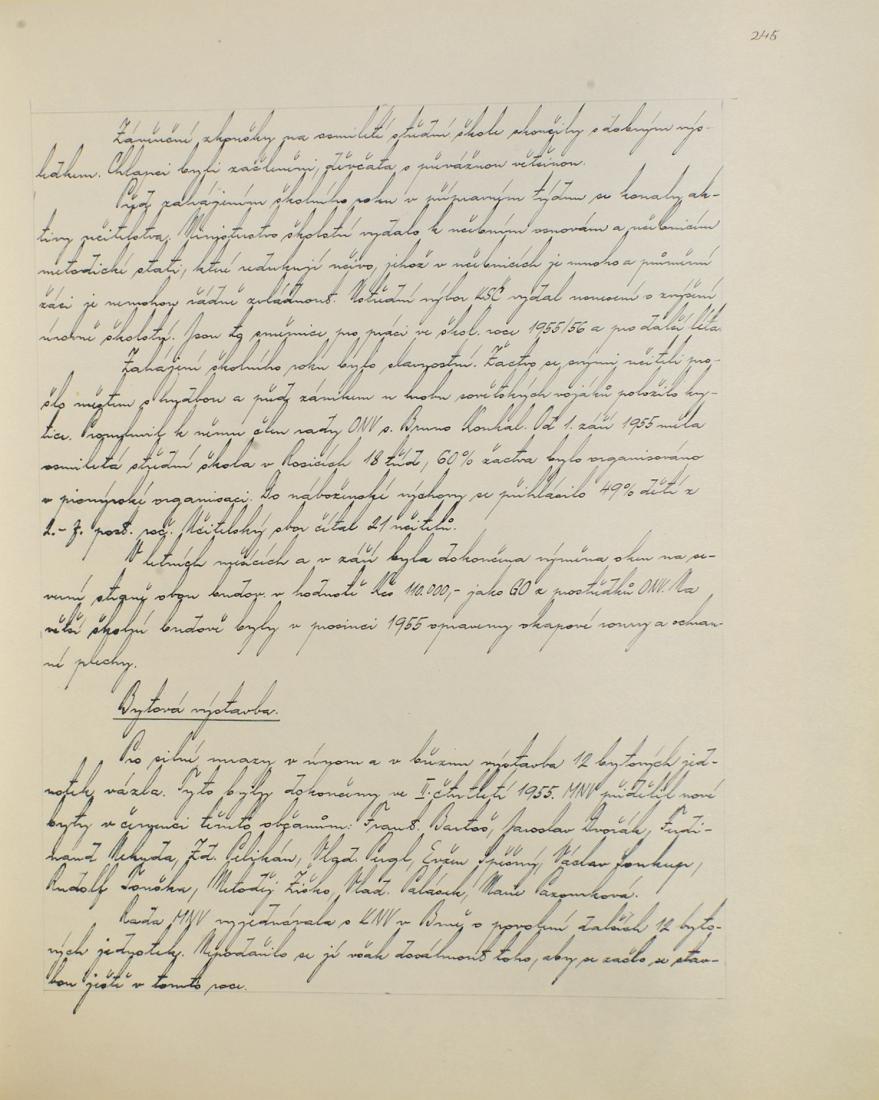 245
Závěrečné zkoušky na osmileté střední škole skončily s dobrým výs-
ledkem. Chlapci byli začleněni, děvčata s převážnou většinou.
Před zahájením školního roku v přípravném týdnu se konaly ak-
tivy učitelstva. Ministerstvo školství vydalo k učebním osnovám a učebnicím
metodické stati, které redukují učivo, jehož v učebnicích je mnoho a průměrní
žáci je nemohou řádně zvládnout. Ústřední výbor KSČ vydal usnesení o zvýšení
úrovně školství. Jsou to směrnice pro práci ve škol. roce 1955/56 a pro další léta.
Zahájení školního roku bylo slavnostní. Žactvo se svými učiteli pro-
šlo městem s hudbou a před zámkem u hrobu sovětských vojáků položilo ky-
tice. Promluvil k němu člen rady ONV s. Bruno Konhal. Od 1. září 1955 měla
osmiletá střední škola v Rosicích 18 tříd, 60% žactva bylo organisováno
v pionýrské organisaci. Do náboženské výchovy se přihlásilo 49% dětí z
2.-7. post. roč. Učitelský sbor čítal 21 učitelů.
V letních měsících a v září byla dokončena výměna oken na se-
verní straně obou budov. v hodnotě Kčs 110.000,- jako GO z prostředků ONV. Na
větší školní budově byly v prosinci 1955 opraveny okapové roury a ochran-
né plechy.
Bytová výstavba.
Pro silné mrazy v únoru a v březnu výstavba 12 bytových jed-
notek vázla. Tyto byly dokončeny ve II. čtvrtletí 1955. MNV přidělil nové
byty v červenci těmto občanům: Frant. Bartoš, Jaroslav Dvořák, Ferdi-
nand Nekuda, Zd. Pelikán, Vlad. Pergl, Evžen Špérný, Václav Joukup,
Rudolf Tonška, Metoděj Žižka, Vlad. Palásek, Marie Pazourková.
Rada MNV vyjednávala s KNV v Brně o povolení dalších 12 byto-
vých jednotek. Nepodařilo se jí však dosáhnout toho, aby se začlo se stav-
bou ještě v tomto roce.